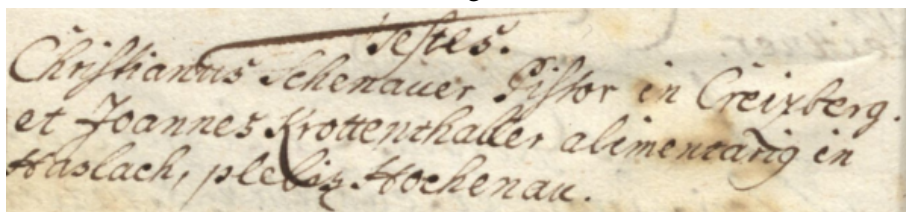 Testes.
Christianus Schenauer Pistor in Creizberg.
et Joannes Krottenthaller alimentariq in
Haslach, plebis Hochenau.